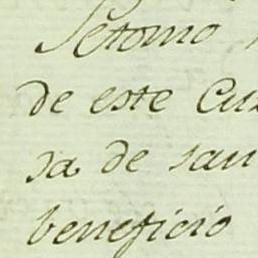 Setomo
de este Cu
sa de san
beneficio